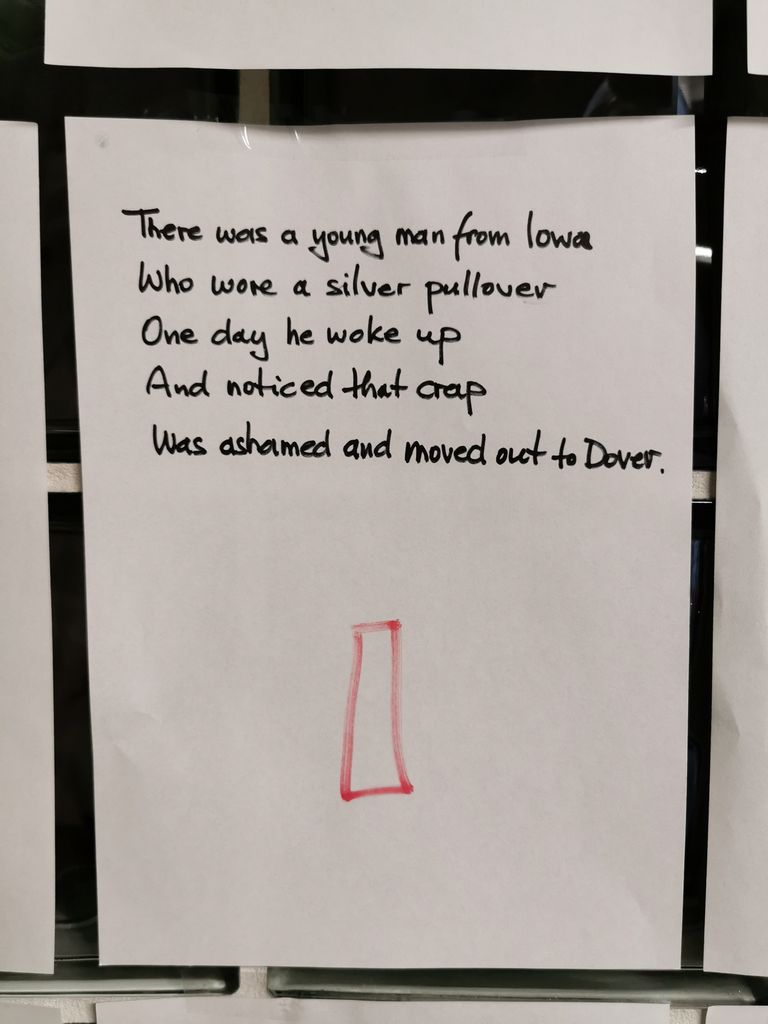 There was a young man from Iowa
Who wore a silver pullover
One day he woke up
And noticed that crap
Was ashamed and moved out to Dover.